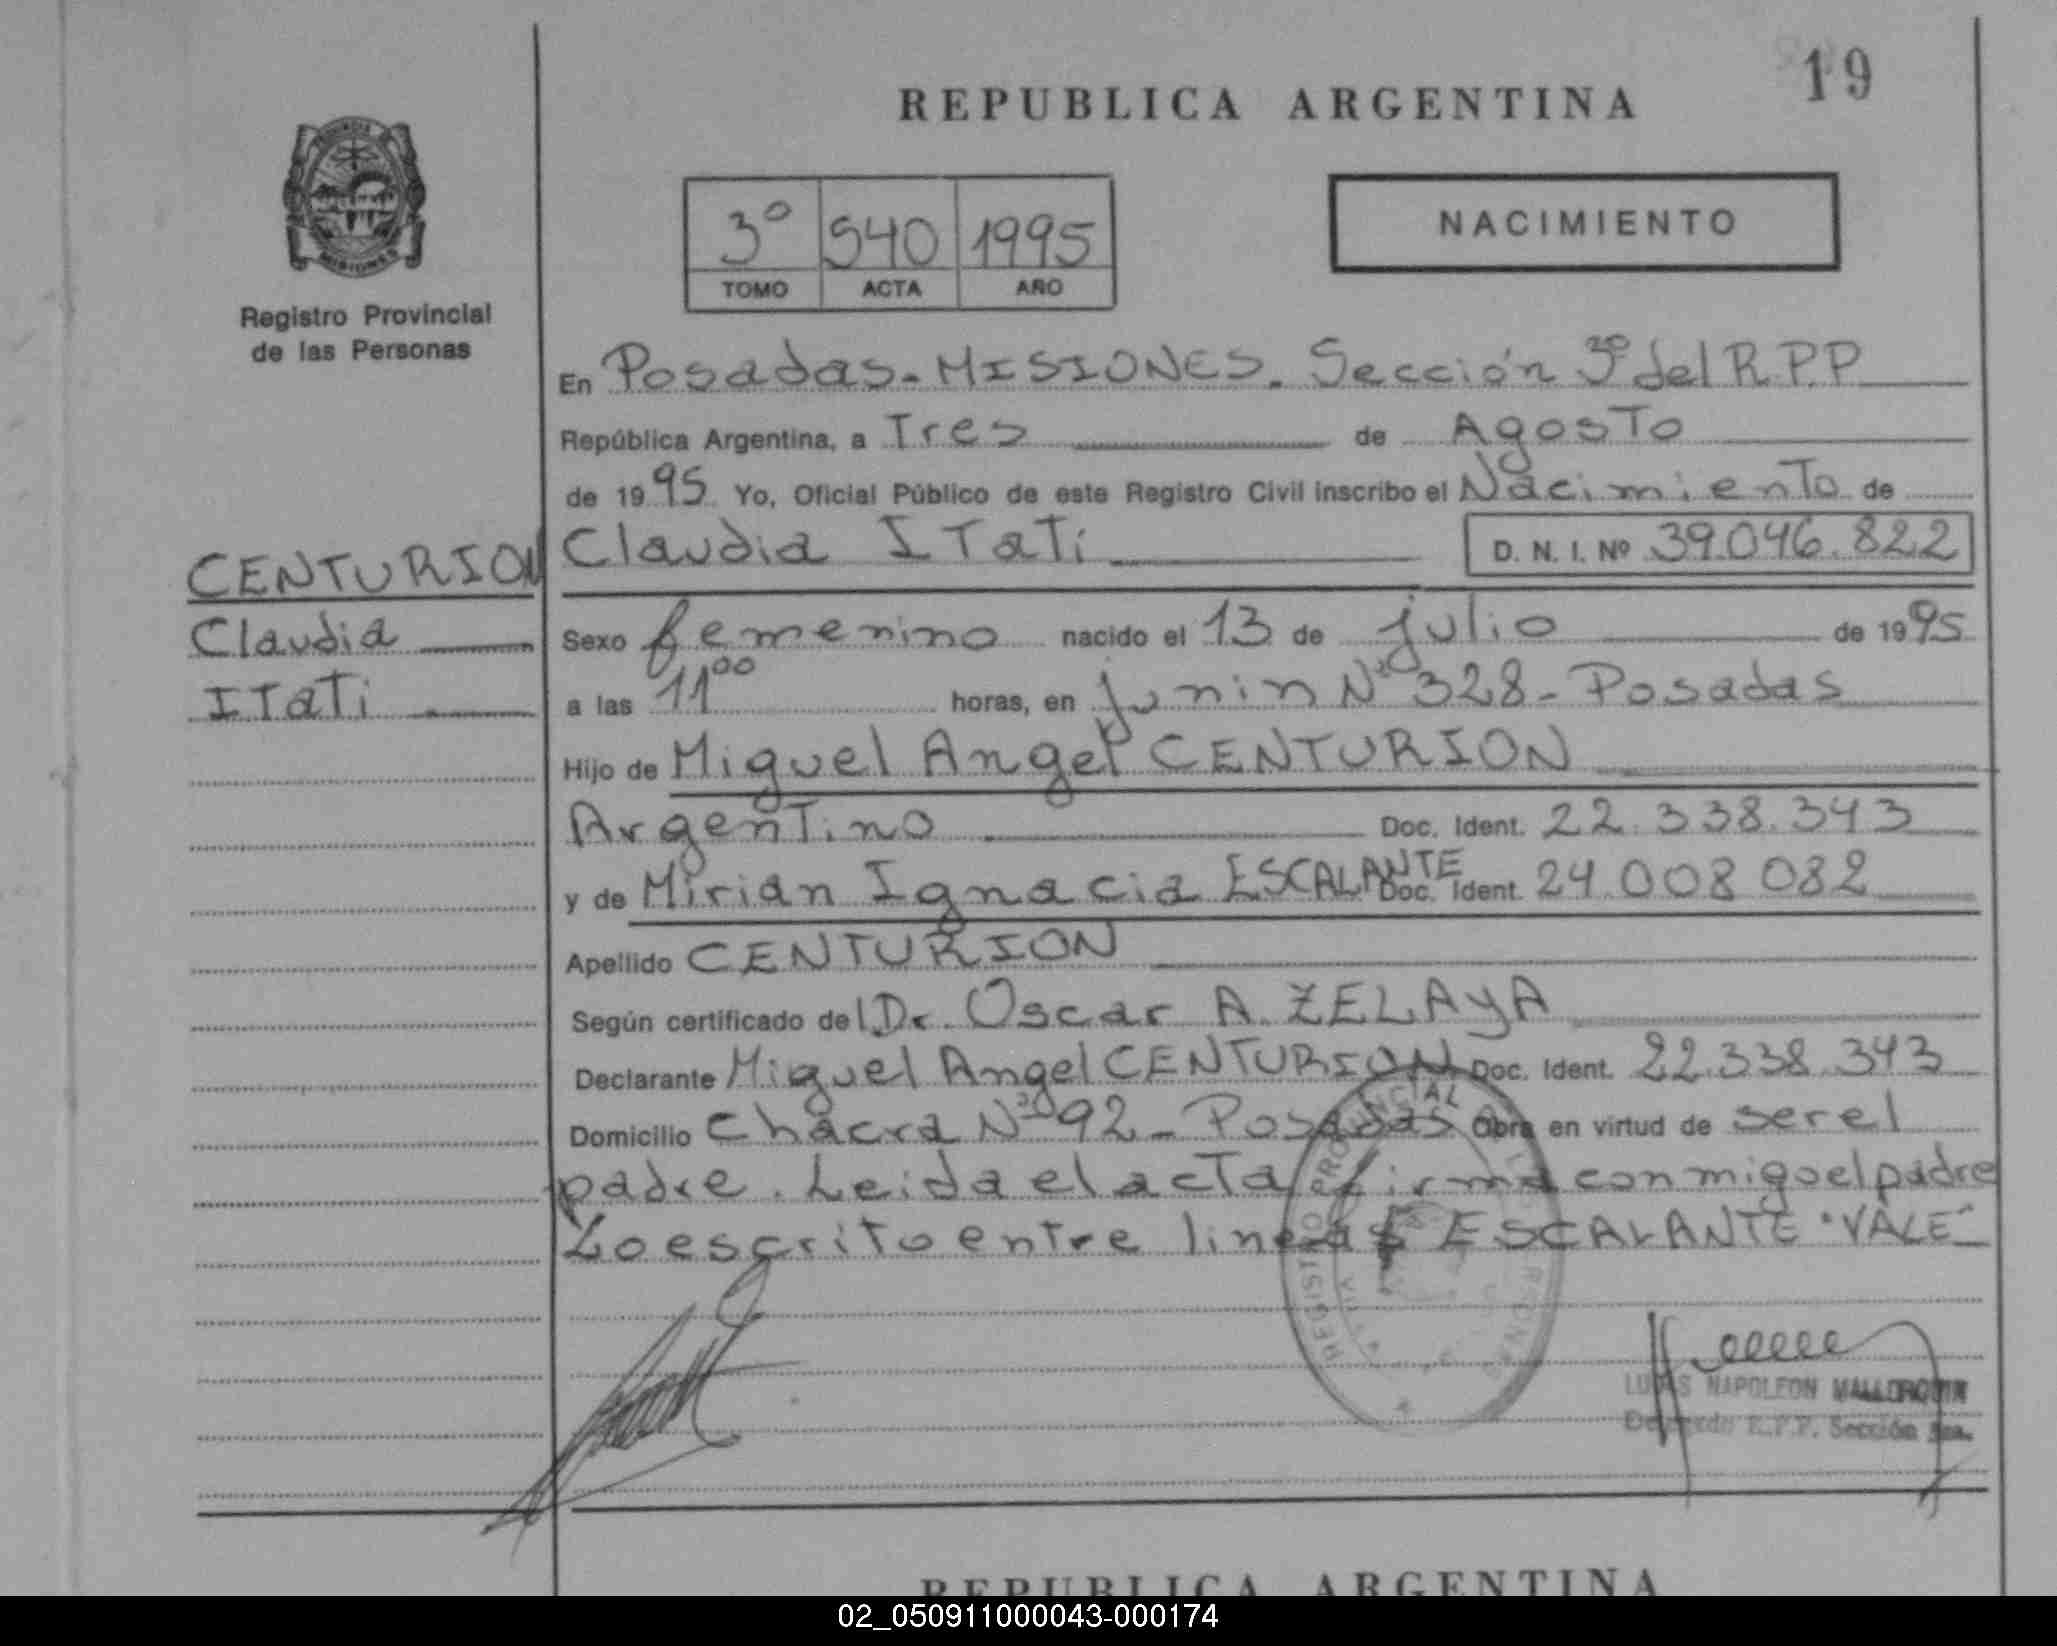 19
REPUBLICA ARGENTINA
MISIONES
Registro Provincial
de las Personas
3º 540 1995
TOMO ACTA AÑO
NACIMIENTO
En Posadas - MISIONES - Sección 3º del R.P.P
República Argentina, a Tres de Agosto
de 1995 Yo, Oficial Público de este Registro Civil inscribo el Nacimiento de
Claudia ITati D. N. I. Nº 39.046.822
CENTURION
Claudia
ITati
Sexo femenino nacido el 13 de julio de 1995
a las 11 00 horas, en junin Nº 328 - Posadas
Hijo de Miguel Angel CENTURION
Argentino Doc. Ident. 22.338.343
y de Mirian Ignacia ESCALANTE Doc. Ident. 24.008 082
Apellido CENTURION
Según certificado del Dr. Oscar A. ZELAYA
Declarante Miguel Angel CENTURION Doc. Ident. 22.338.343
Domicilio Chacra Nº 92 - Posadas Obra en virtud de ser el
padre. Leida el acta firma conmigo el padre
Lo escrito entre lineas ESCALANTE "VALE"
REGISTRO PROVINCIAL DE LAS PERSONAS
LUCAS NAPOLEON MALLORQUIN
Delegado R.P.P. Sección 3ra.
REPUBLICA ARGENTINA
02_050911000043-000174